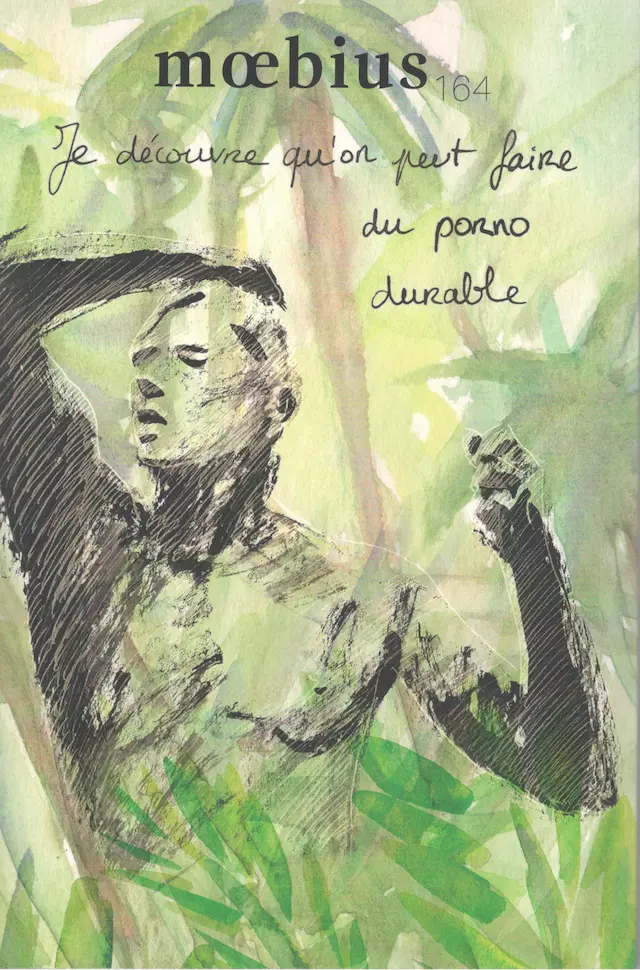 mœbius 164
Je découvre qu'on peut faire
du porno
durable